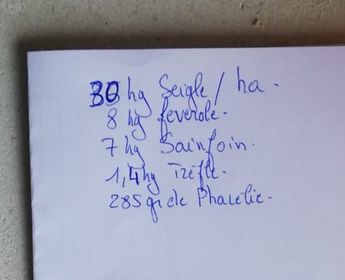 30 kg Seigle / ha.
8 kg feverole.
7 kg Sainfoin.
1,4 kg Trèfle.
285 gr de Phacélie.